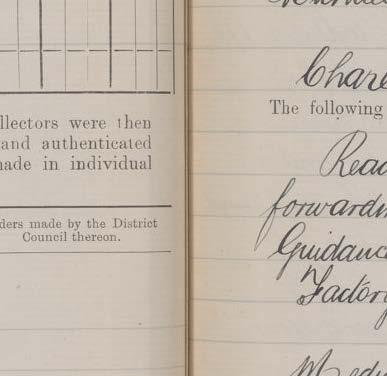 llectors were then
and authenticated
made in individual
ders made by the District
Council thereon.
The following
Read
forward
Guidanc
Factory